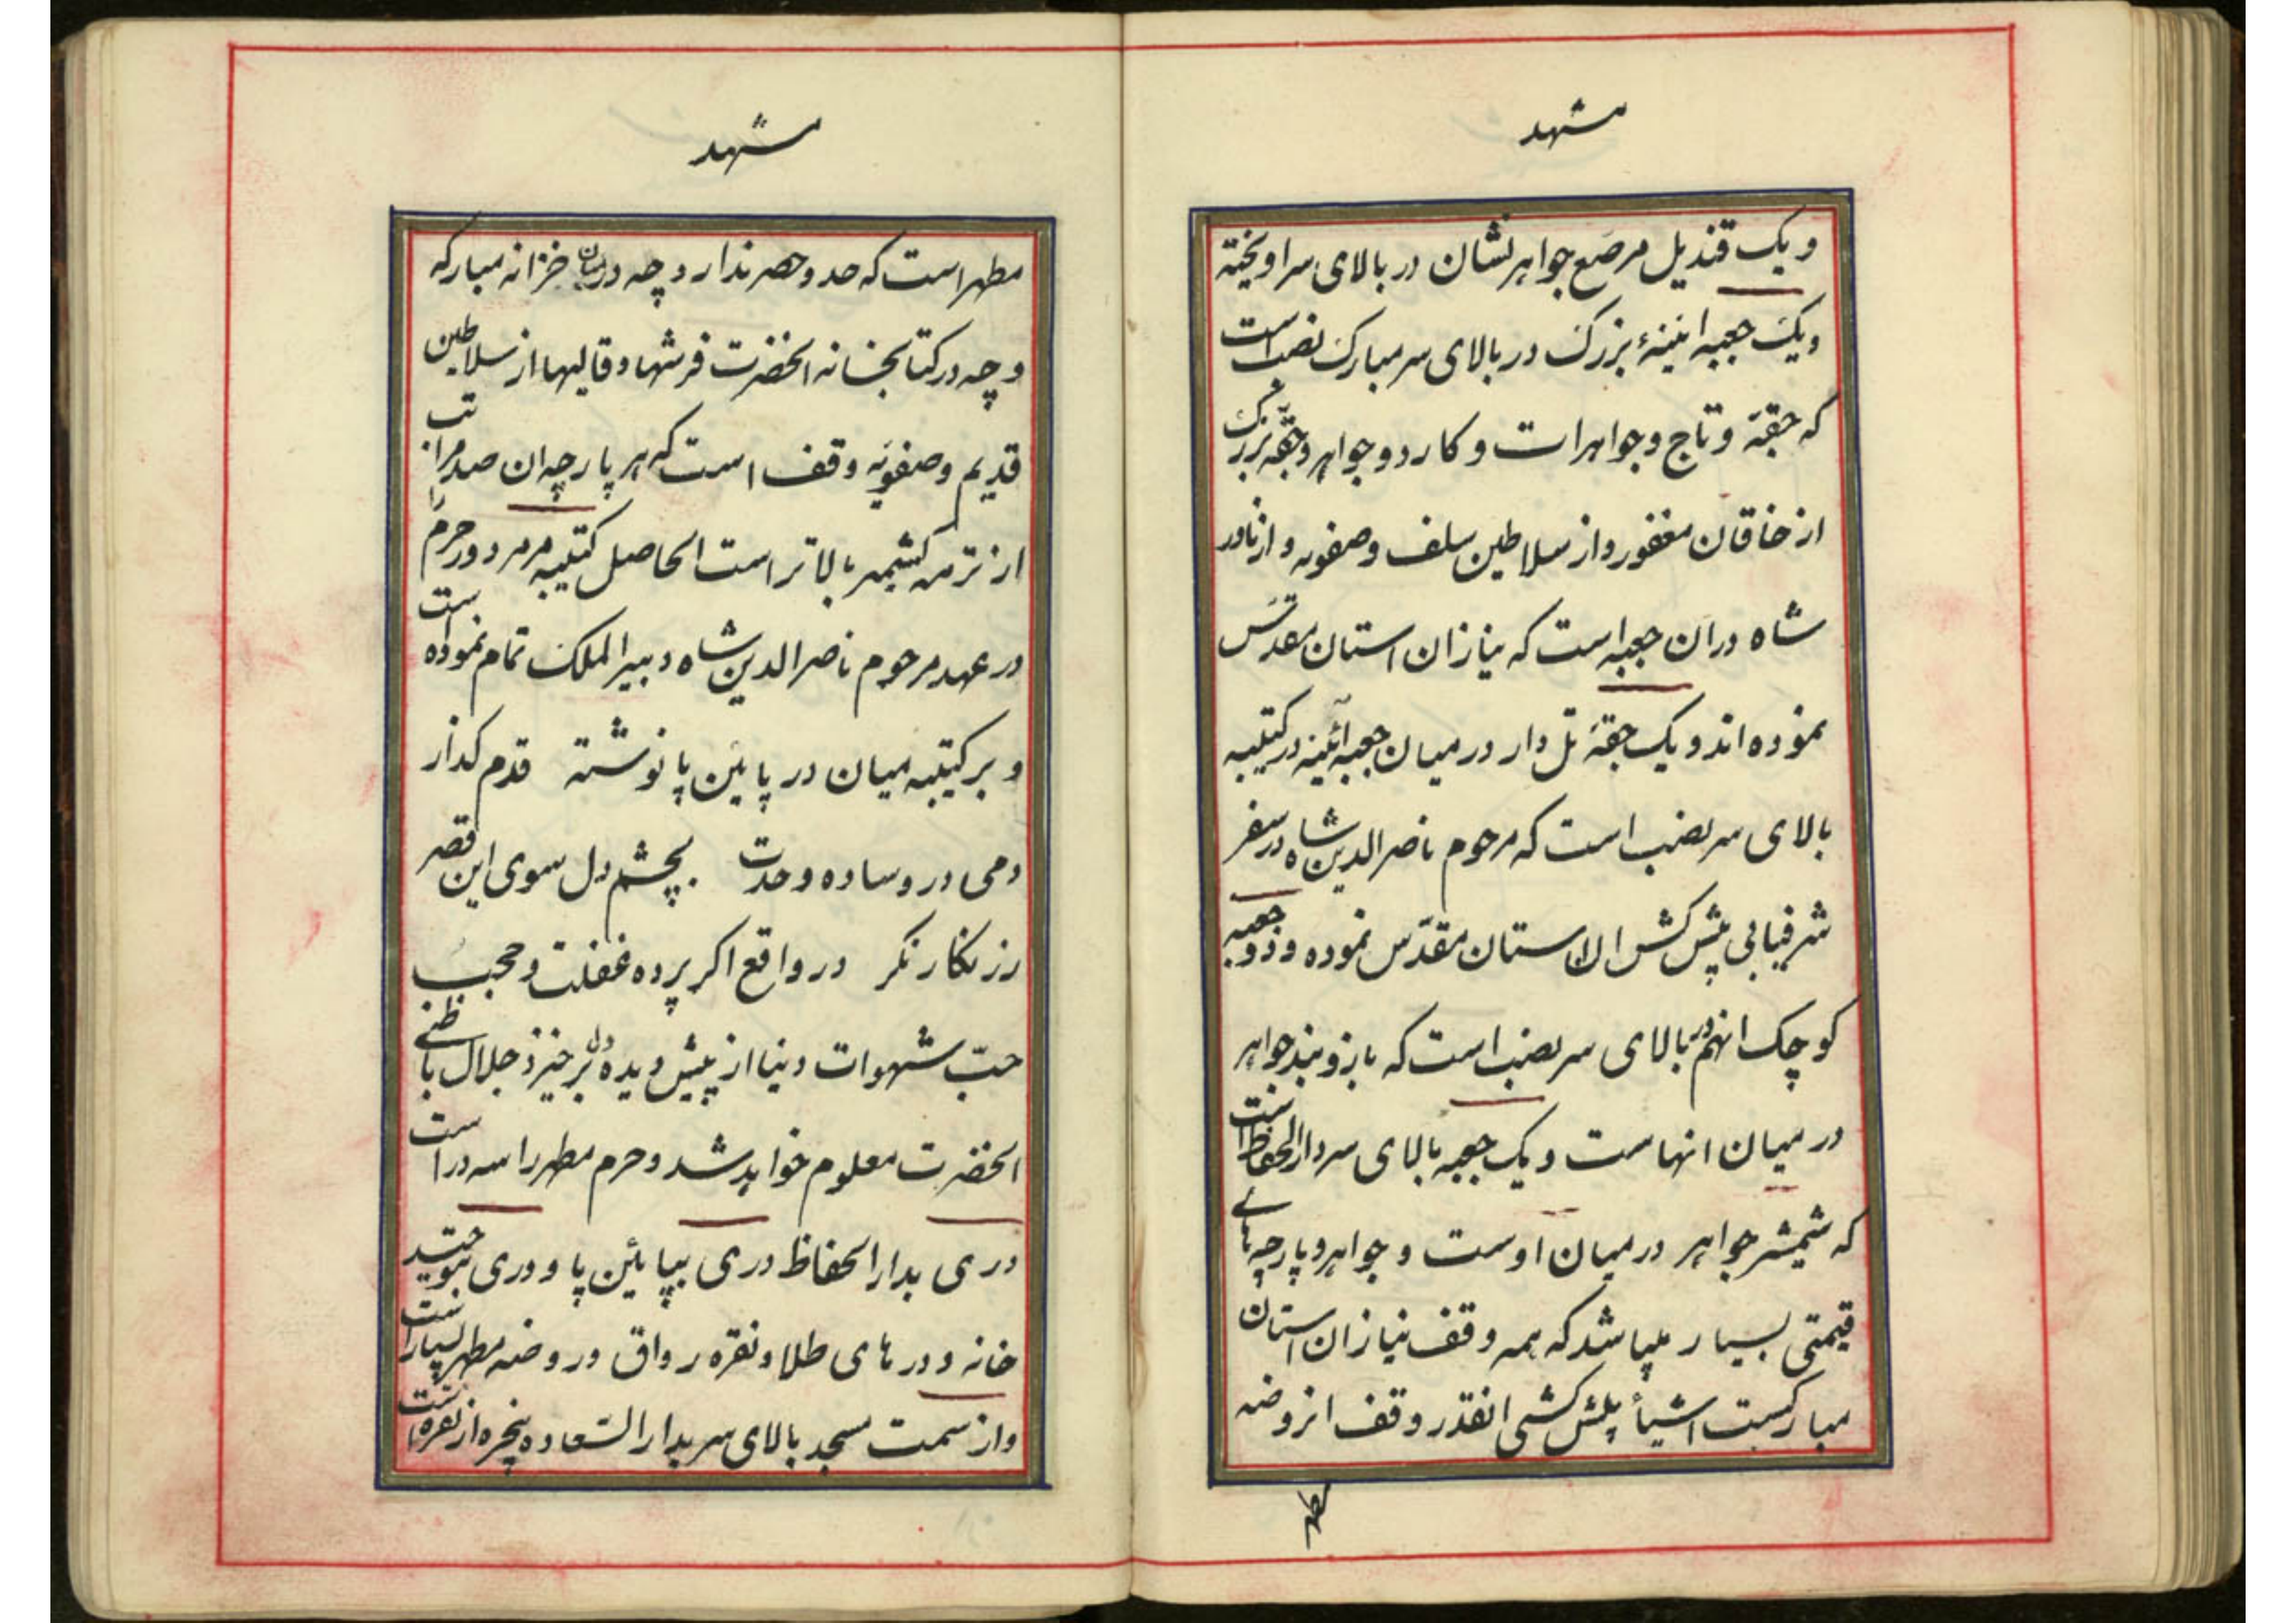 مشهد
و یک قندیل مرصع جواهر نشان در بالای سر اویخته
و یک جعبه اینیهٔ بزرک در بالای سر مبارک نصب است
که جقهٔ و تاج و جواهرات و کارد و جواهر و جقهٔ بزرک
از خاقان مغفور و از سلاطین سلف و صفویه و از نادر
شاه در ان جعبه است که نیاز ان استان مقدس
نموده اند و یک جقهٔ تل دار در میان جعبه آئینه در کتیبه
بالای سر نصب است که مرحوم ناصرالدین شاه در سفر
شرفیابی پیش کش ان استان مقدّس نموده و دو جعبه
کوچک انهم در بالای سر نصب است که بازوبند جواهر
در میان انهاست و یک جعبه بالای سر دار الحفاظ است
که شمشیر جواهر در میان اوست و جواهر و پارچه های
قیمتی بسیار میباشد که همه وقف نیاز ان استان
مبارکست اشیأ پیش کشی انقدر وقف ان روضه
مطهر
مشهد
مطهر است که حد و حصر ندارد چه در میان خزانه مبارکه
و چه در کتابخانه انحضرت فرشها و قالیها از سلاطین
قدیم و صفویه وقف است که هر پارچه ان صد مراتب
از ترمه کشمیر بالاتر است الحاصل کتیبه مرمر دور حرم را
در عهد مرحوم ناصرالدین شاه دبیر الملک تمام نموده است
و بر کتیبه میان در پایین پا نوشته قدم کذار
دمی در وساده وحدت بچشم دل سوی این قصر
زرنکار نکر در واقع اکر پرده غفلت و حجب
حبّ شهوات دنیا از پیش دیده دل برخیزد جلال باطنی
انحضرت معلوم خواهد شد و حرم مطهر را سه در است
دری بدار الحفاظ دری بپایئن پا و دری بتوحید
خانه و در های طلا و نقره رواق و روضه مطهر بسیار است
و از سمت مسجد بالای سر بدار السّعاده پنجره از نقره است